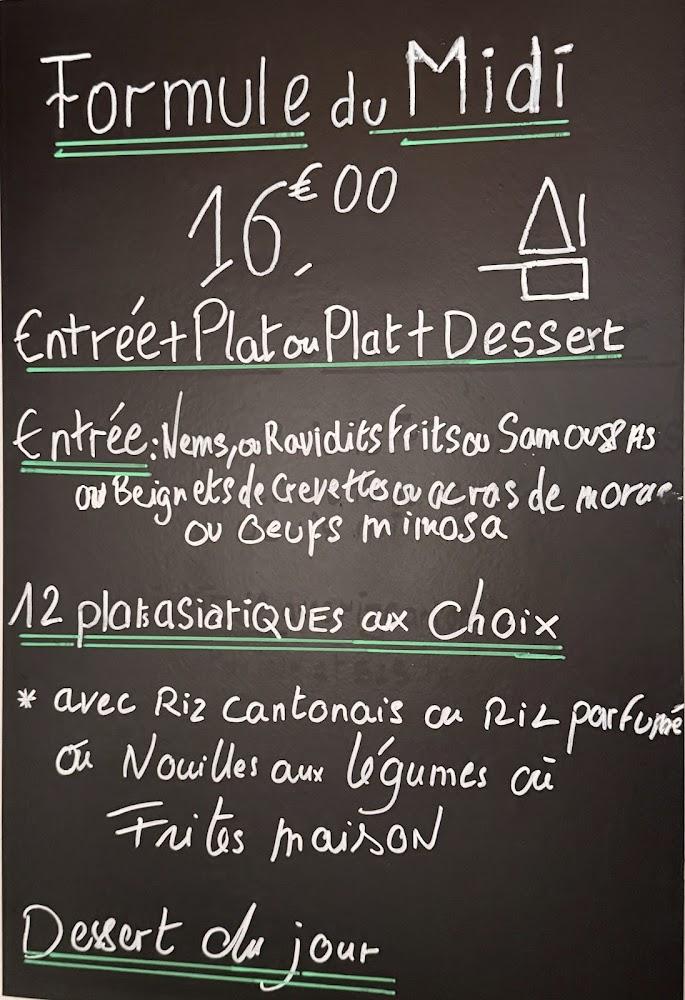 Formule du Midi
16,€00
Entrée+Plat ou Plat+Dessert
Entrée: Nems, ou Ravidits Frits ou Samoussas
ou Beignets de Crevettes ou acras de morue
ou Oeufs mimosa
12 plats asiatiQUES aux Choix
* avec Riz Cantonais ou Riz parfumé
ou Nouilles aux légumes où
Frites maison
Dessert du jour